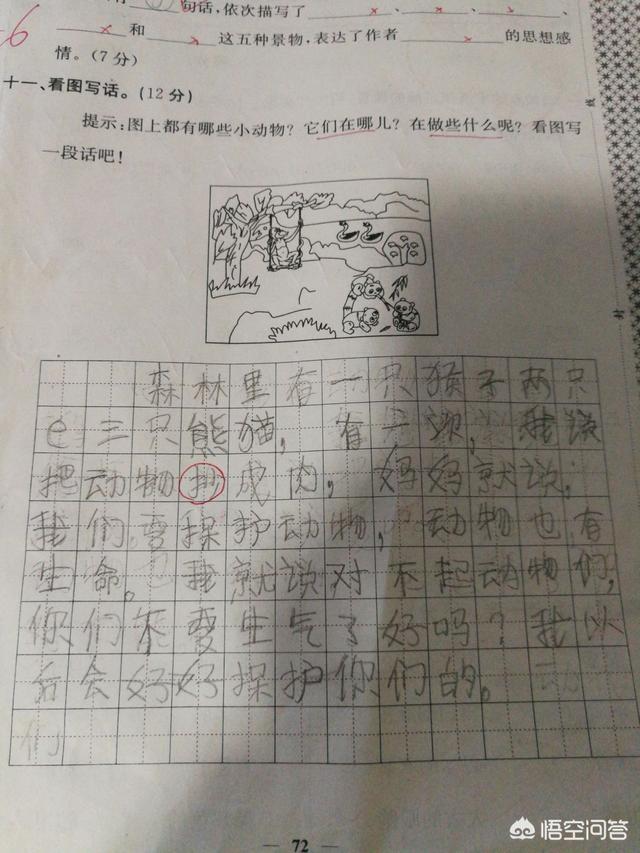 句话,依次描写了____、____、____、
____和____这五种景物,表达了作者____的思想感
情。(7分)
6
十一、看图写话。(12分)
提示:图上都有哪些小动物?它们在哪儿?在做些什么呢?看图写
一段话吧!
森林里有一只猴子两只
e三只熊猫,有一次,我说
把动物抄成肉,妈妈就说:
我们要保护动物,动物也有
生命。我就说对不起动物们,
你们不要生气了好吗?我以
后会好好保护你们的。
们
— 72 —
悟空问答